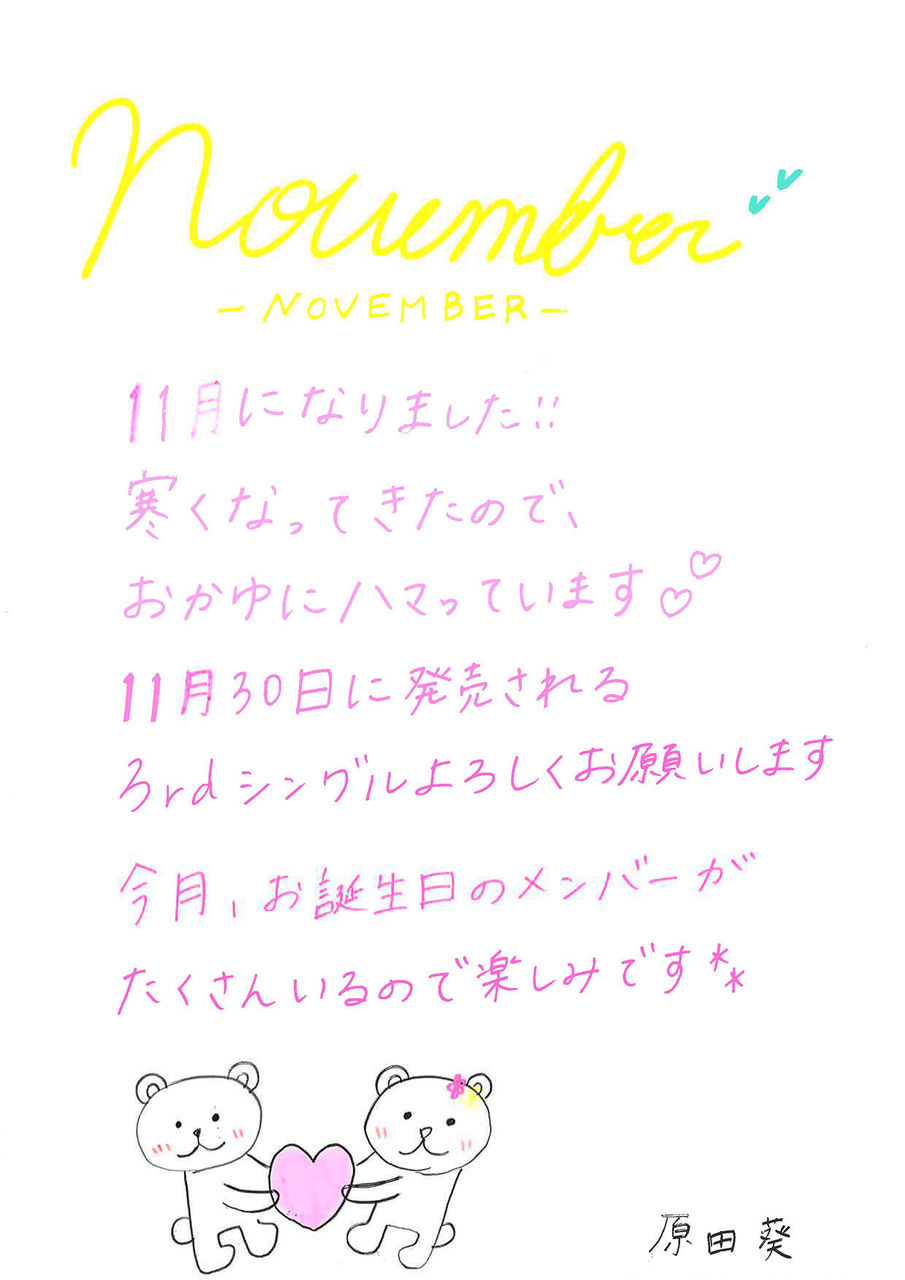 November
- NOVEMBER -
11月になりました!!
寒くなってきたので、
おかゆにハマっています♡♡
11月30日に発売される
3rdシングルよろしくお願いします
今月、お誕生日のメンバーが
たくさんいるので楽しみです**
原田葵